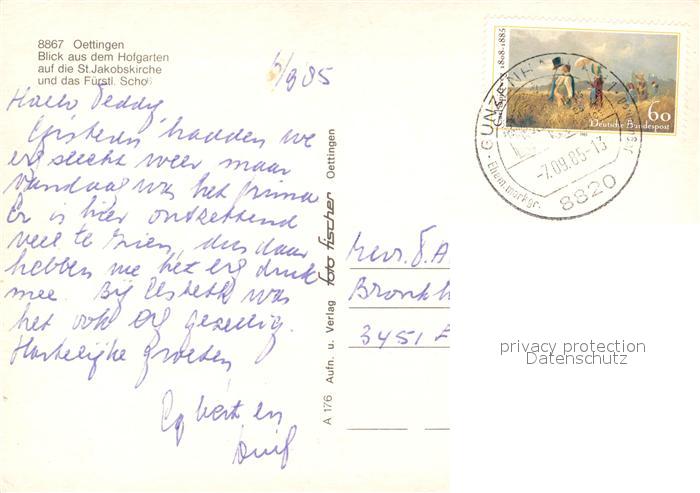 8867 Oettingen
Blick aus dem Hofgarten
auf die St.Jakobskirche
und das Fürstl. Schoß
6/9 85
Hallo Teddy
Gisteren hadden we
erg slecht weer maar
vandaag was het prima
Er is hier ontzettend
veel te zien, dus daar
hebben we het erg druk
mee. Bij was
het ook erg gezellig.
Hartelijke groeten
Egbert en
A 176 Aufn. u. Verlag foto fischer Oettingen
Mevr. T. A
Bronkh
3451
Carl Spitzweg 1808-1885
60
Deutsche Bundespost
GUNZENHAUSEN
-7.09.85-13
8820
Ehem. markgr.
privacy protection
Datenschutz